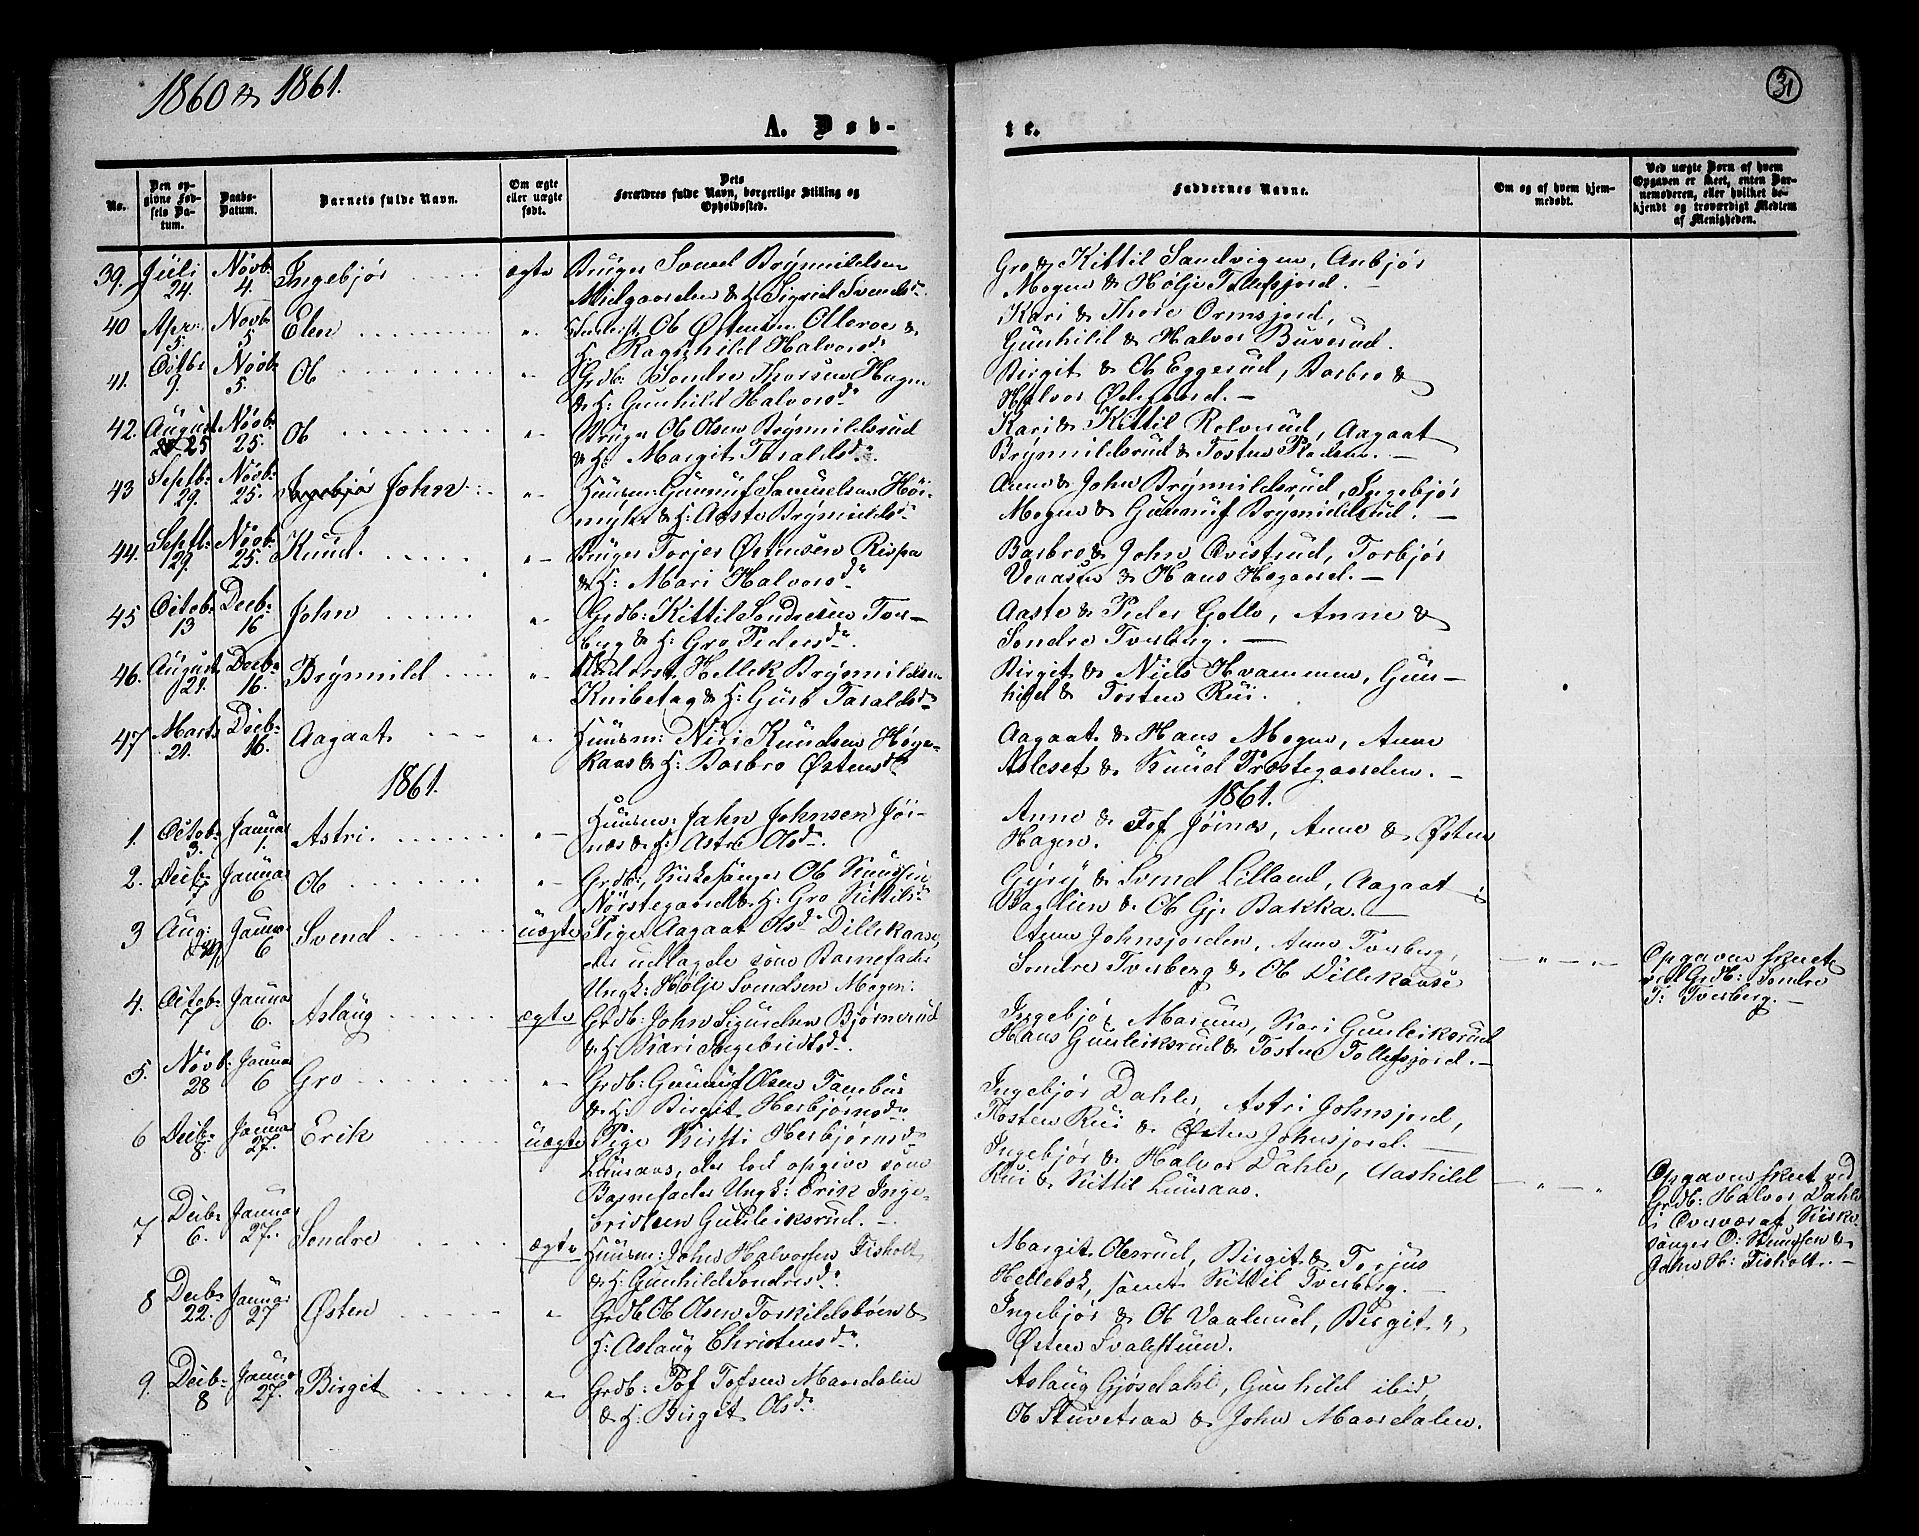 1860 & 1861.
31
A. Døb-
te.
No.
Den opgivne Fødsels Datum.
Daabs-Datum.
Barnets fulde Navn.
Om ægte eller uægte født.
Dets Forældres fulde Navn, borgerlige Stilling og Opholdssted.
Faddernes Navne.
Om og af hvem hjemmedøbt.
Ved uægte Børn af hvem Opgaven er skeet, enten Barnemoderen, eller hvilket bekjendt og troværdigt Medlem af Menigheden.
39. Juli 24. Novb: 4. Ingebjør ægte Bruger Svend Brynnildsen
Midgaarden & H: Sigrid Svendsd:
Gro & Kittil Sandvigen, Anbjør
Mogen & Hølje Tollefsjord. —
40 Apr: 5. Novb: 5 Elen " Ole Østensen Olleroe &
H: Ragnhild Halvorsd:
Kari & Thore Ormsjord,
Gunhild & Halvor Buverud.
41. Octbr 9. Novb: 5. Ole " Grdb: Sondre Thorsen Hagen
& H: Gunhild Halvorsd:
Birgit & Ole Eggerud, Barbro &
Halvor Ødegaard. —
42. August 25 Novb: 25. Ole " Bruger Ole Olsen Brynnildsrud
& H: Margit Taraldsd:
Kari & Kittil Rolverud, Aagaat
Brynnildsrud & Tosten Pladsen. —
43 Septb: 29. Novb: 25. Ingebjør John " Huusm: Gunnuf Samuelsen Høi-
myhr & H: Aaste Brynnildsd:
Anne & John Brynnildsrud, Ingebjør
Mogen & Gunnuf Brynnildsrud. —
44. Septb: 29. Novb: 25. Knud. " Bruger Torjer Østensen Rispa
& H: Mari Halvorsd:
Barbro & John Qvistrud, Torbjør
Veaasen & Hans Hegaard. —
45 Octob: 13 Decb: 16 John " Grdb: Kittil Sondresen Tver-
berg & H: Gro Pedersd:
Aaste & Peder Gollo, Anne &
Sondre Tverberg. —
46. August 21. Decb: 16. Brynnild " Hellek Brynnildsen
& H: Guro Taraldsd:
Birgit & Niels Hvammen, Gun-
hild & Tosten Rui.
47 Marts 21. Decb: 16. Aagaat " Huusm: Niri Knudsen Høge-
kaas & H: Barbro Østensd:
Aagaat & Hans Mogen, Anne
Asleset & Knud Præstegaarden. —
1861.
1861.
1. Octob: 3. Januar 1. Astri " Huusm: John Johnsen Jøi-
næs & H: Astri Olsd:
Anne & Tof Jøinæs, Anne & Østen
Hagen.
2. Decb: 7 Januar 6 Ole " Grdb:, Kirkesanger Ole Knudsen
Nørstegaard & H: Gro Kittilsd:
Gyry & Svend Lilland, Aagaat
Baglien & Ole Gj. Bakka. —
3 Aug: Januar 6 Svend uægte Pige Aagaat Olsd: Dillekaase,
der udlagde som Barnefader
Ungk: Hølje Svendsen Mogen:
Anne Johnsjorden, Anne Tverberg,
Sondre Tverberg & Ole Dillekaase
Opgaven skeet
ved Grdb: Sondre
T: Tverberg. —
4. Octob: 7 Januar 6. Aslaug ægte Grdb: John Sigurdsen Bjørnerud
& H: Kari Ingebrigtsd:
Ingebjør Marum, Kari Gunleiksrud
Hans Gunleiksrud & Tosten Tollefsjord. —
5. Novb: 28 Januar 6 Gro " Grdb: Gunnuf Olsen Tambur
& H: Birgit Herbjørnsd:
Ingebjør Dahle, Astri Johnsjord,
Tosten Rui & Østen Johnsjord. —
6 Decb: 8. Januar 27. Erik uægte Pige Kirsti Herbjørnsd:
Luuraas, der lod opgive som
Barnefader Ungk: Erik Inge-
brigtsen Gunleiksrud. —
Ingebjør & Halvor Dahle, Aashild
Rui & Kittil Luuraas.
Opgaven skeet ved
Grdb: Halvor Dahle
i Overvær af Kirke-
sanger O: Knudsen &
John H: Fisholt. —
7 Decb: 6. Januar 27. Sondre ægte Huusm: John Halvorsen Fisholt
& H: Gunhild Sondresd:
Margit Olesrud, Birgit & Torjus
Hellebæk, samt Kittil Tverberg. —
8 Decb: 22. Januar 27 Østen " Grdb Ole Olsen Torkildsbøen &
H: Aslaug Christensd:
Ingebjør & Ole Vaalerud, Birgit &
Østen Svalestuen.
9. Decb: 8 Januar 27. Birget " Grdb: Tof Tofsen Maardalen
& H: Birget Olsd:
Aslaug Gjøsdahl, Gunhild ibid,
Ole Stuvetraa & John Maardalen.